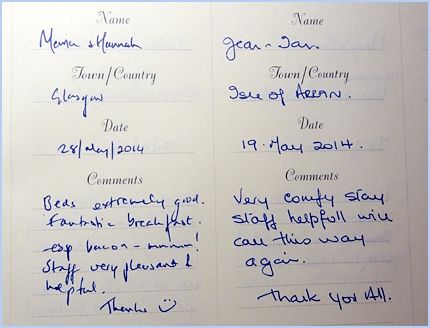 Name
& Hannah
Town/Country
Glasgow
Date
28/May/2014
Comments
Beds extremely good.
Fantastic breakfast.
-esp bacon - mmm!
Staff very pleasant &
helpful.
Thanks ☺
Name
Jean - Ian
Town/Country
Isle of ARRAN.
Date
19 · May 2014.
Comments
Very comfy stay
staff helpfull will
call this way
again.
Thank you All.